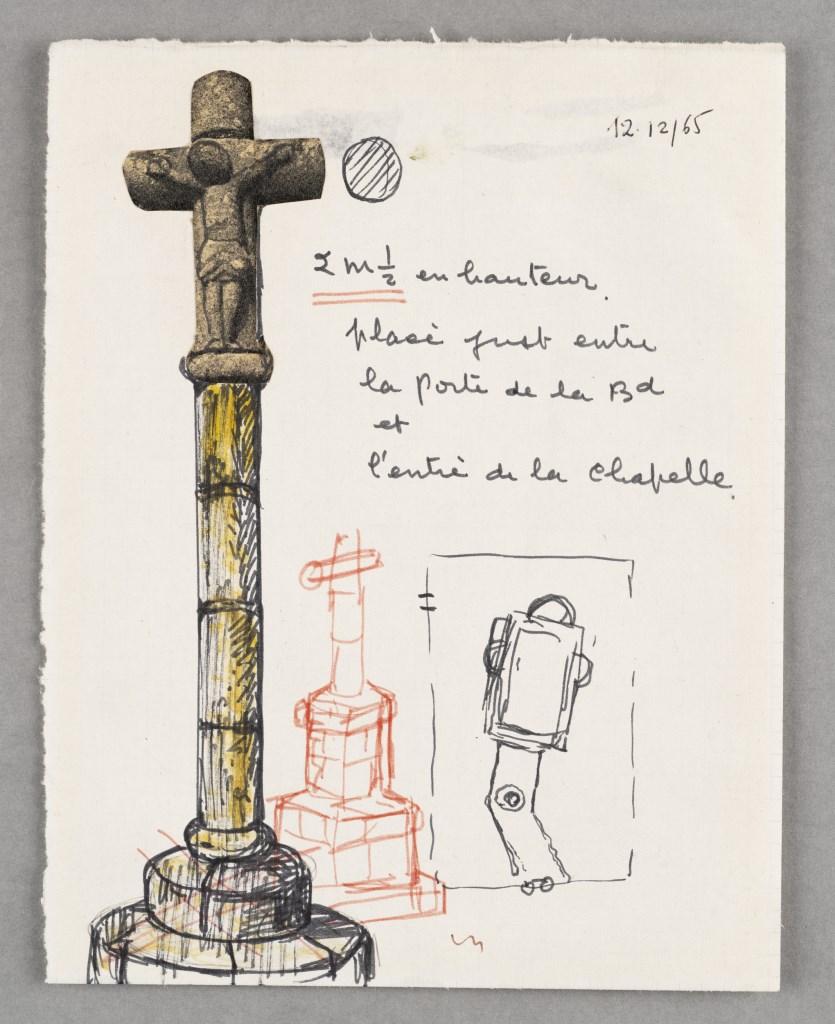 12.12/65
2 m ½ en hauteur.
placé just entre
la porte de la Bd
et
l'entré de la chapelle.